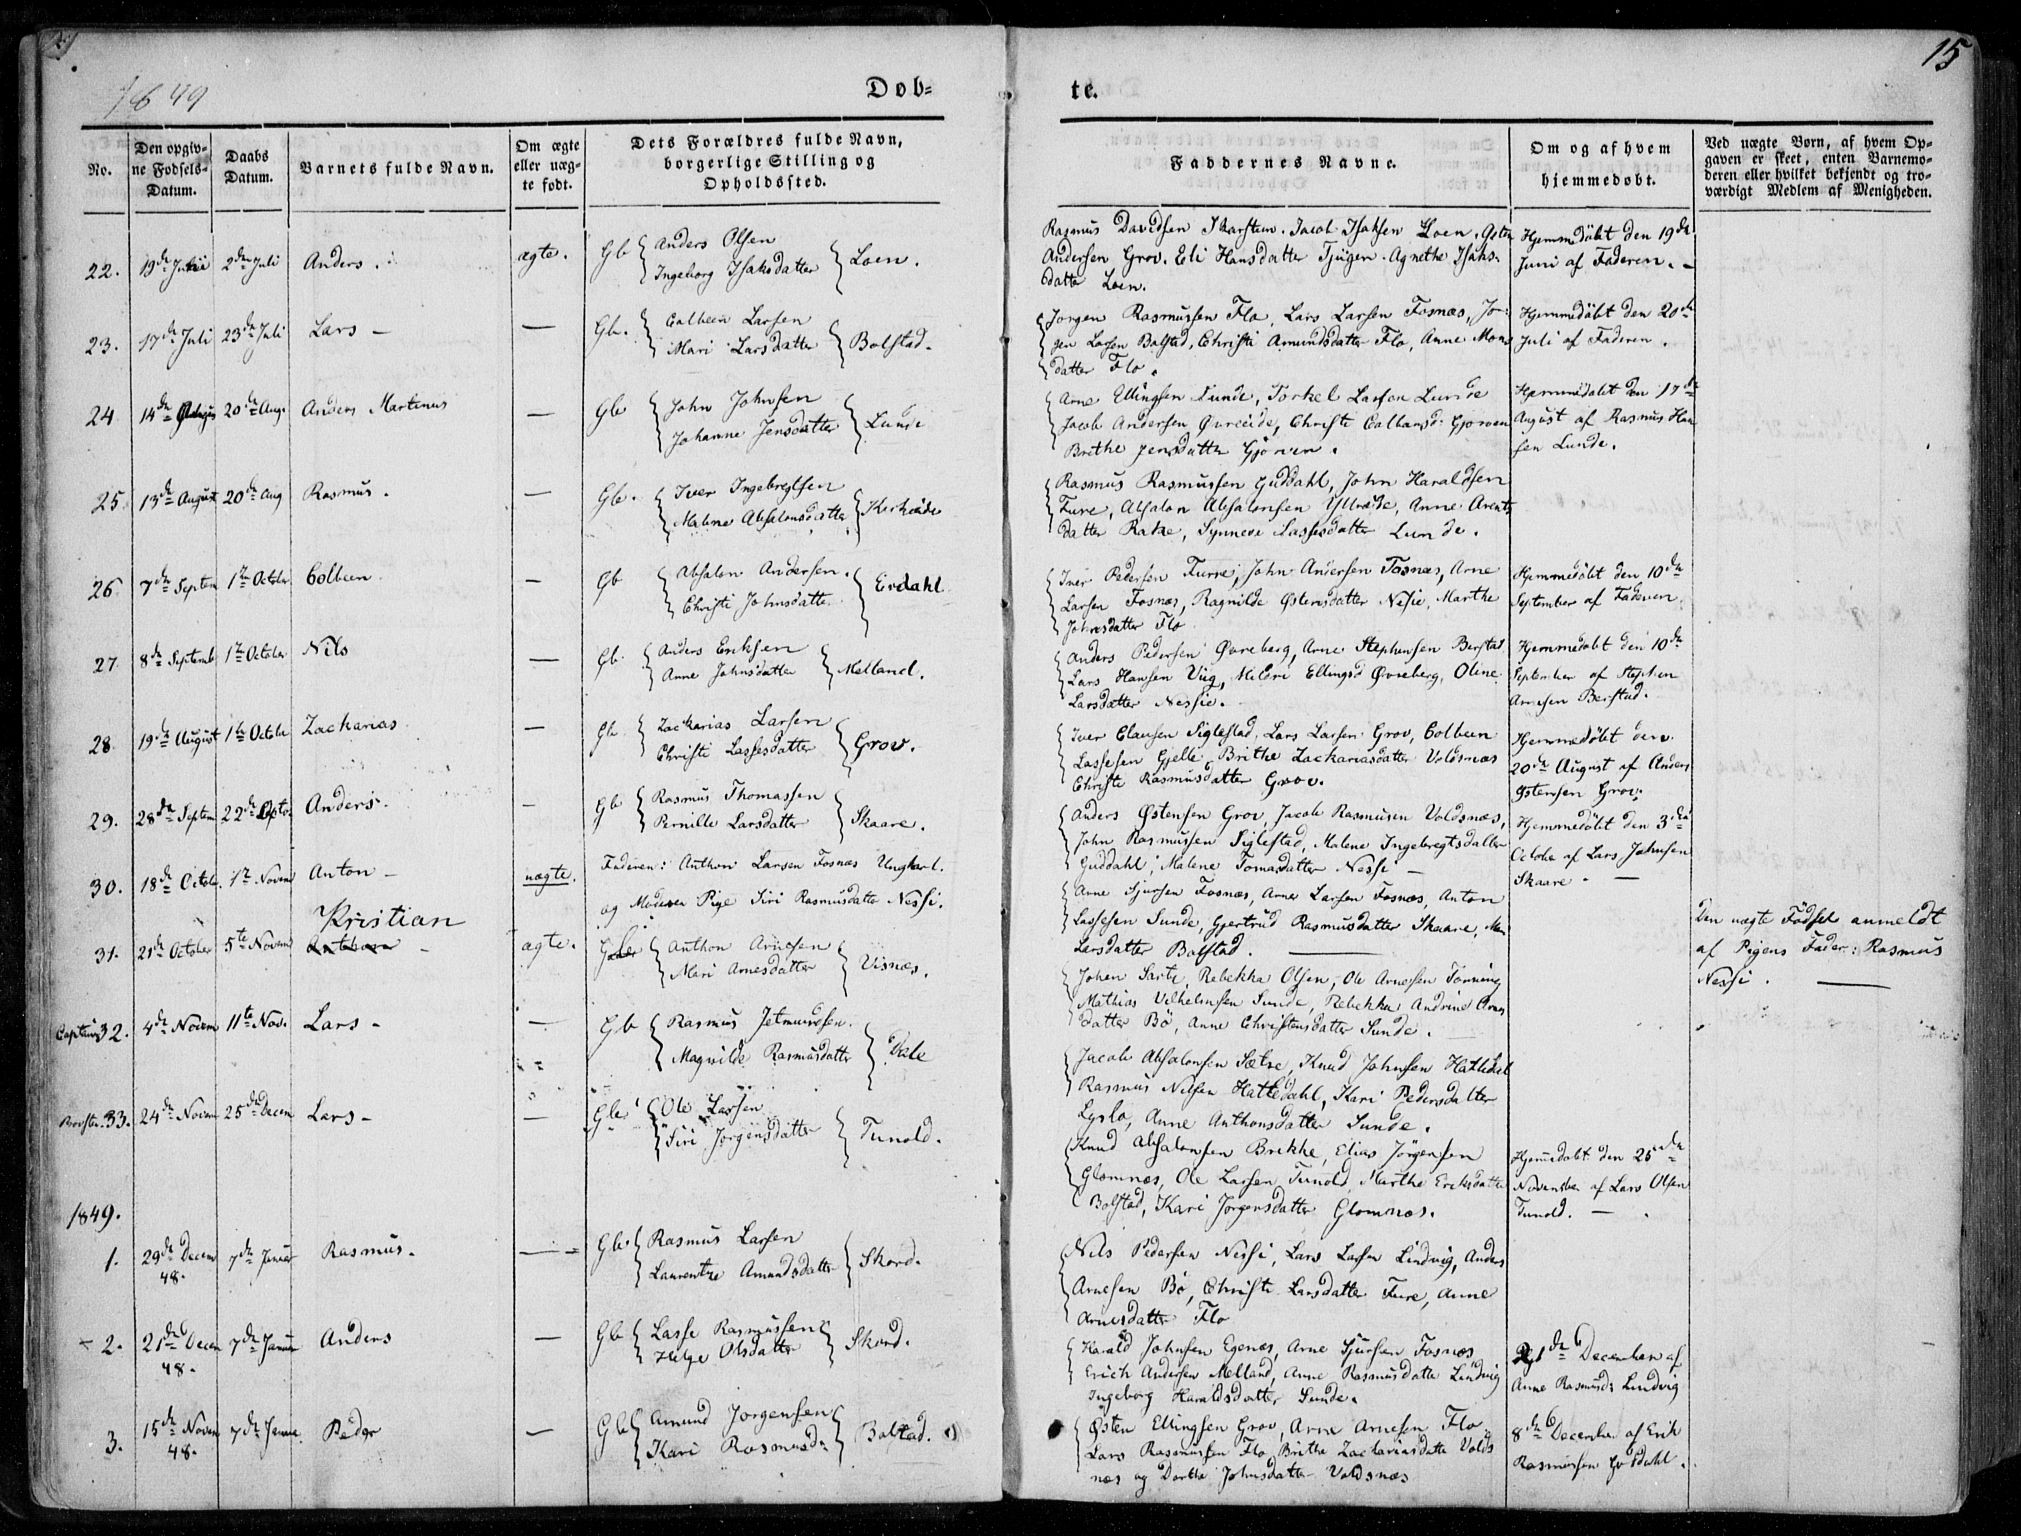 15
1849
Døb=
te.
No.
Den opgiv-
ne Fødsels-
Datum.
Daabs
Datum.
Barnets fulde Navn.
Om ægte
eller uæg-
te født.
Dets Forældres fulde Navn,
borgerlige Stilling og
Opholdssted.
Faddernes Navne.
Om og af hvem
hjemmedøbt.
Ved uægte Børn, af hvem Op-
gaven er skeet, enten Barnemo-
deren eller hvilket bekjendt og tro-
værdigt Medlem af Menigheden.
22. 19de Juni 2den Juli Anders. ægte. Gb Anders Olsen
Ingeborg Isaksdatter Loen.
Rasmus Davidsen Skarstein. Jacob Isaksen Loen. Østen
Andersen Grov. Eli Hansdatter Tjugen. Agnethe Isaks-
datter Loen.
Hjemmedøbt den 19de
Juni af Faderen. –
23. 17de Juli 23de Juli Lars – — Gb. Colbeen Larsen
Mari Larsdatter Bolstad.
Jørgen Rasmussen Flo, Lars Larsen Fosnæs, Jør-
gen Larsen Bolstad, Christi Amundsdatter Flo, Anne Mons
datter Flo.
Hjemmedøbt den 20de
Juli af Faderen.
24 14de August 20de Aug. Anders Martenus — Gb John Johnsen
Johanne Jensdatter Lunde
Arne Ellingsen Lunde, Torkel Larsen Lunde
Jacob Andersen Qvreeide, Christi Colbansd: Gjørven
Brithe Jensdatter Gjørven.
Hjemmedøbt den 17de
August af Rasmus Han
sen Lunde.
25. 13de August 20de Aug Rasmus. — Gb. Iver Ingebregtsen
Malene Absalonsdatter Kirkeide
Rasmus Rasmussen Guddahl, John Haraldsen
Fure, Absalon Absalonsen Ytreeide, Anne Arents
datter Rake, Synneve Lassesdatter Lunde.
26. 7de Septem 1ste October Colbeen. — Gb Absalon Andersen.
Christi Johnsdatter Erdahl
Iver Pedersen Furre, John Andersen Fosnæs, Arne
Larsen Fosnæs, Ragnilde Østensdatter Nesie, Marthe
Johnsdatter Flo
Hjemmedøbt den 10de
September af Faderen.
27. 8de Septemb 1ste October Nils — Gb. Anders Eriksen
Anne Johnsdatter Melland.
Anders Pedersen Øvreberg, Arne Stephensen Berstad
Lars Hansen Viig, Mildri Ellingsd Øvreberg, Oline
Larsdatter Nessie.
Hjemmedøbt den 10de
September af Stephen
Arnesen Berstad.
28. 19de August 1ste October Zackarias — Gb Zackarias Larsen
Christi Lassesdatter Grov.
Iver Clausen Siglestad, Lars Larsen Grov, Colbeen
Lassesen Gjelle, Brithe Zackariasdatter Voldsnæs
Christi Rasmusdatter Grov.
Hjemmedøbt den
20de August af Anders
Østensen Grov.
29. 28de Septem 22de Anders. — Gb Rasmus Thomassen
Pernille Larsdatter Skaare.
Anders Østensen Grov, Jacob Rasmusen Voldsnæs,
John Rasmussen Siglestad, Malene Ingebregtsdatter
Guddahl, Malene Tomasdatter Nessi –
Hjemmedøbt den 3die
October af Lars Johnsen
Skaare –
30. 18de Octobr. 1ste Novem Anton – uægte. Faderen: Anthon Larsen Fosnæs Ungkarl.
og Moderen Pige Siri Rasmusdatter Nessi.
Arne Sjursen Fosnæs, Arne Larsen Fosnæs, Anton
Lassesen Sunde, Gjertrud Rasmusdatter Skaare, Mari
Larsdatter Bolstad. —
Den uægte Fødsel anmeldt
af Pigens Fader: Rasmus
Nessi. —
Kristian
31. 21de October 5te Novem Anthon – ægte. Anthon Arnesen
Mari Arnesdatter Visnæs.
Johen Sarte, Rebekka Olsen, Ole Arnesen Tonning
Mathias Velhelmsen Sunde, Rebekka Andrine Arnes
datter Bø, Anne Christensdatter Sunde.
32. 4de Novem 11te Nov. Lars – — Gb Rasmus Jetmundsen.
Magnilde Rasmusdatter Dale
Jacob Absalonsen Sætre, Knud Johnsen Hattledal
Rasmus Nilsen Hattledahl, Kari Pedersdatter
Lyslo, Anne Anthonsdatter Sunde.
33. 24de Novem 25de Decem Lars – — Gb. Ole Larsen
Siri Jørgensdatter Tunold.
Knud Absalonsen Brekke, Elias Jørgensen
Glomnæs, Ole Larsen Tunold, Marthe Eriksdatter
Bolstad, Kari Jørgensdatter Glomnæs.
Hjemmedøbt den 25de
November af Lars Olsen
Tunold. –
1849.
1. 29de Decem
48. 7de Januar Rasmus. — Gb. Rasmus Larsen
Laurentze Amundsdatter Skord.
Nils Pedersen Nessi, Lars Larsen Lindvig, Anders
Arnesen Bø, Christi Larsdatter Fure, Anne
Arnesdatter Flo
2. 21de Decem
48. 7de Januar Anders — Gb Lasse Rasmussen
Helge Olsdatter Skord.
Harald Johnsen Egenæs, Arne Sjursen Fosnæs
Erich Andersen Melland, Anne Rasmusdatter Lindvig
Ingeborg Haraldsdatter Sunde.
21de December af
Anne Rasmusd: Lindvig
3. 15de Novem
48. 7de Januar Peder — Gb Amund Jørgensen
Kari Rasmusd: Bolstad.
Østen Ellingsen Grov, Arne Arnesen Flo
Lars Rasmussen Flo, Brithe Zackariasdatter Volds
næs og Dorthe Johnsdatter Voldsnæs
8de December af Erik
Rasmussen Guddahl.